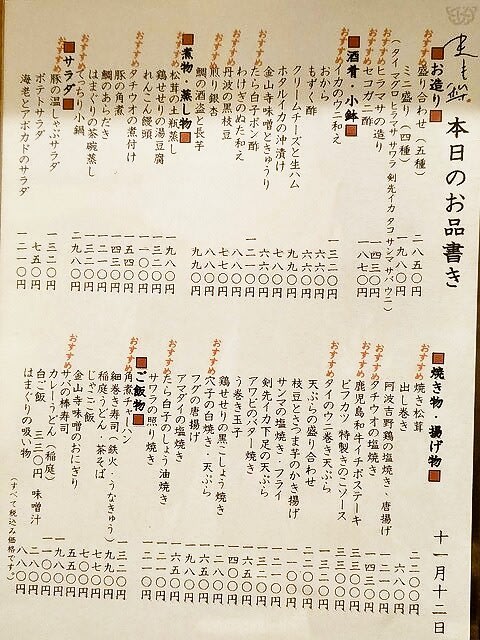 本日のお品書き
■お造り■
おすすめ 盛り合わせ（五種） 二八五〇円
ミニ盛り（四種） 一九八〇円
（タイ マグロ ヒラマサ サワラ 剣先イカ タコ サンマ サバ ウニ）
おすすめ ヒラマサの造り 一四三〇円
おすすめ セコガニ酢 一八七〇円
■酒肴・小鉢■
おすすめ イカのウニ和え 一三二〇円
おから 六六〇円
もずく酢 六六〇円
クリームチーズと生ハム 九九〇円
ホタルイカの沖漬け 六六〇円
金山寺味噌ときゅうり 六六〇円
おすすめ たら白子ポン酢 一二一〇円
わけぎのぬた和え 七七〇円
おすすめ 丹波の黒枝豆 八八〇円
おすすめ 煎り銀杏
鯛の酒盗と長芋 九九〇円
■煮物・蒸し物■
おすすめ 松茸の土瓶蒸し 一九八〇円
鶏せせりの湯豆腐 一一〇〇円
れんこん饅頭 一一〇〇円
おすすめ タチウオの煮付け 一五四〇円
豚の角煮 一四三〇円
鯛のあらだき 一二一〇円
はまぐりの茶碗蒸し 一三二〇円
おすすめ てっちり小鍋 二九八〇円
■サラダ■
おすすめ 豚の温しゃぶサラダ 一三二〇円
ポテトサラダ 七五〇円
海老とアボカドのサラダ 一二一〇円
■焼き物・揚げ物■
おすすめ 焼き松茸 二二〇〇円
出し巻き 六八〇円
阿波吉野鶏の塩焼き・唐揚げ
おすすめ タチウオの塩焼き 一四三〇円
おすすめ 鹿児島和牛イチボステーキ 三三〇〇円
ビフカツ 特製きのこソース 三三〇〇円
おすすめ タイのウニ巻き天ぷら
天ぷらの盛り合わせ
枝豆とさつま芋のかき揚げ
サンマの塩焼き・フライ
剣先イカ下足の天ぷら
アワビのバター焼き
う巻き玉子
鶏せせりの黒こしょう焼き
おすすめ 穴子の白焼き・天ぷら
フグの唐揚げ
アマダイの塩焼き
おすすめ たら白子のしょう油焼き
サワラの照り焼き
■ご飯物■
おすすめ 角煮チャーハン
細巻き寿司（鉄火・うなきゅう）
稲庭うどん・茶そば
じゃこご飯
金山寺味噌のおにぎり
おすすめ サバの棒寿司
カレーうどん（稲庭）
白ご飯 三三〇円 味噌汁
はまぐりの吸い物 八八〇円
（すべて税込み価格です。）
十一月十二日